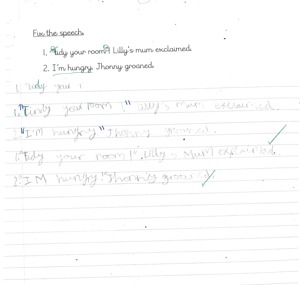 Fix the speech.
1. "Tidy your room!" Lilly's mum exclaimed.
2. I'm hungry, Jhonny groaned.
1. Tidy your
1. "Tirdy your room!" Lilly's mum exclaimed.
2. "I'm hungry" Jhonny groaned.
1. "Tidy your room!". Lilly's Mum explaimed.
2. I'M hungry." Jhonny groaned